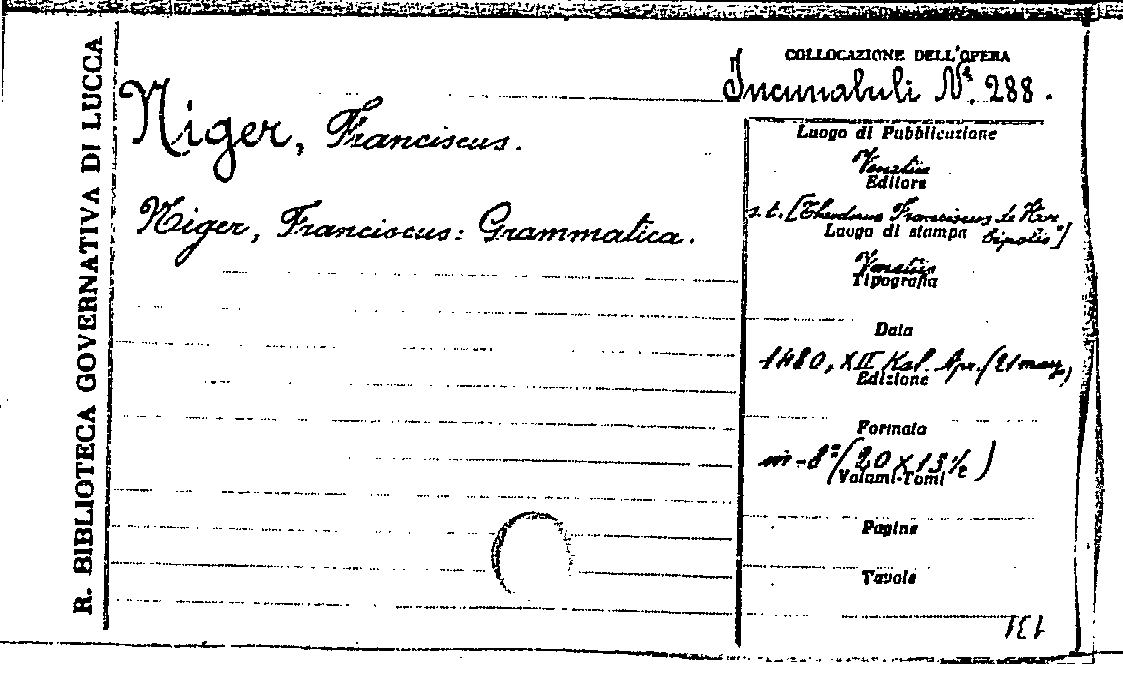 R. BIBLIOTECA GOVERNATIVA DI LUCCA
COLLOCAZIONE DELL'OPERA
Incunabuli N.º 288.
Niger, Franciscus.
Niger, Franciscus: Grammatica.
Luogo di Pubblicazione
Venetiis
Editore
s. t. [Theodorus Franciscus de Her
Luogo di stampa
bipolis"]
Venetiis
Tipografia
Data
1480, XII Kal. Apr. (21 marzo)
Edizione
Formato
in-8º (20 X 13 ½)
Volumi-Tomi
Pagine
Tavole